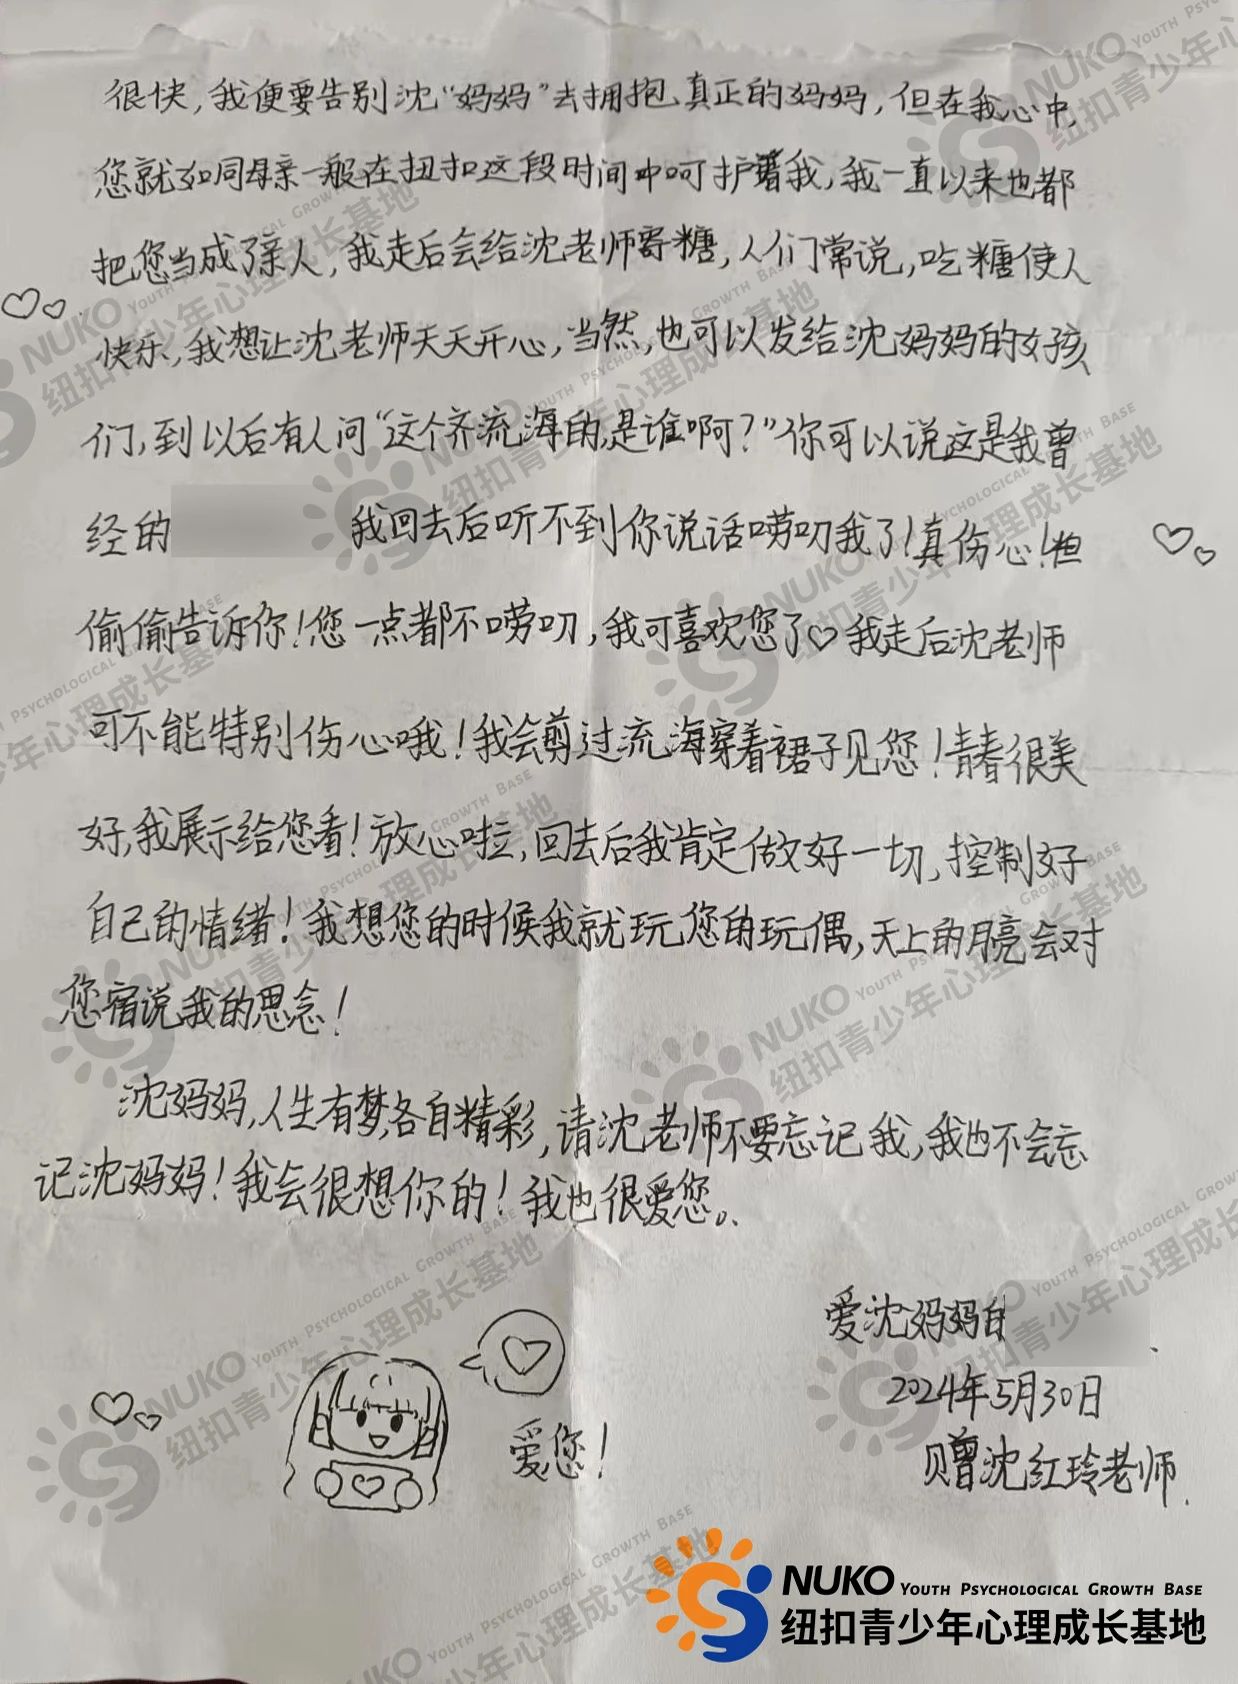 很快，我便要告别沈“妈妈”去拥抱真正的妈妈，但在我心中，
您就如同母亲一般在扭扣这段时间中呵护着我，我一直以来也都
把您当成了亲人，我走后会给沈老师寄糖，人们常说，吃糖使人
快乐，我想让沈老师天天开心，当然，也可以发给沈妈妈的女孩
们，到以后有人问“这个齐流海的是谁啊？”你可以说这是我曾
经的 我回去后听不到你说话唠叨我了！真伤心！但
偷偷告诉你！您一点都不唠叨，我可喜欢您了♡我走后沈老师
可不能特别伤心哦！我会剪过流海穿着裙子见您！青春很美
好，我展示给您看！放心啦，回去后我肯定做好一切，控制好
自己的情绪！我想您的时候我就玩您的玩偶，天上的月亮会对
您宿说我的思念！
沈妈妈，人生有梦，各自精彩，请沈老师不要忘记我，我也不会忘
记沈妈妈！我会很想你的！我也很爱您。
爱沈妈妈
2024年5月30日
赠沈红玲老师.
爱您！
NUKO YOUTH PSYCHOLOGICAL GROWTH BASE
纽扣青少年心理成长基地